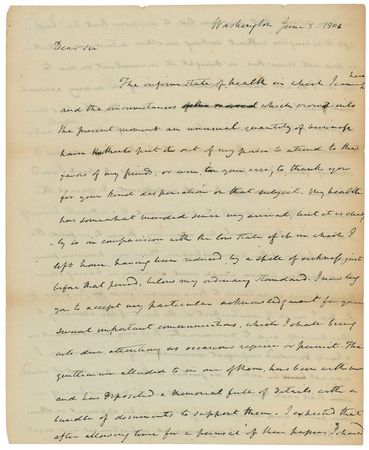 Washington June 5. 1801
Dear Sir
The infirm state of health in which I came here
and the circumstances which crowd into
the present moment an unusual quantity of business
have hitherto put it out of my power to attend to the
favors of my friends, or even, in your case, to thank you
for your kind dispensation on that subject. My health
has somewhat mended since my arrival, but it is chief-
ly so in comparison with the low state of it in which I
left home, having been reduced, by a spell of sickness just
before that period, below my ordinary standard. I now beg
you to accept my particular acknowledgment for your
several important communications, which I shall bring
into due attention as occasions require or permit. The
gentleman alluded to in one of them, has been with me
and has deposited a memorial full of details, with a
bundle of documents to support them. I expected that
after allowing time for a perusal of these papers, I should